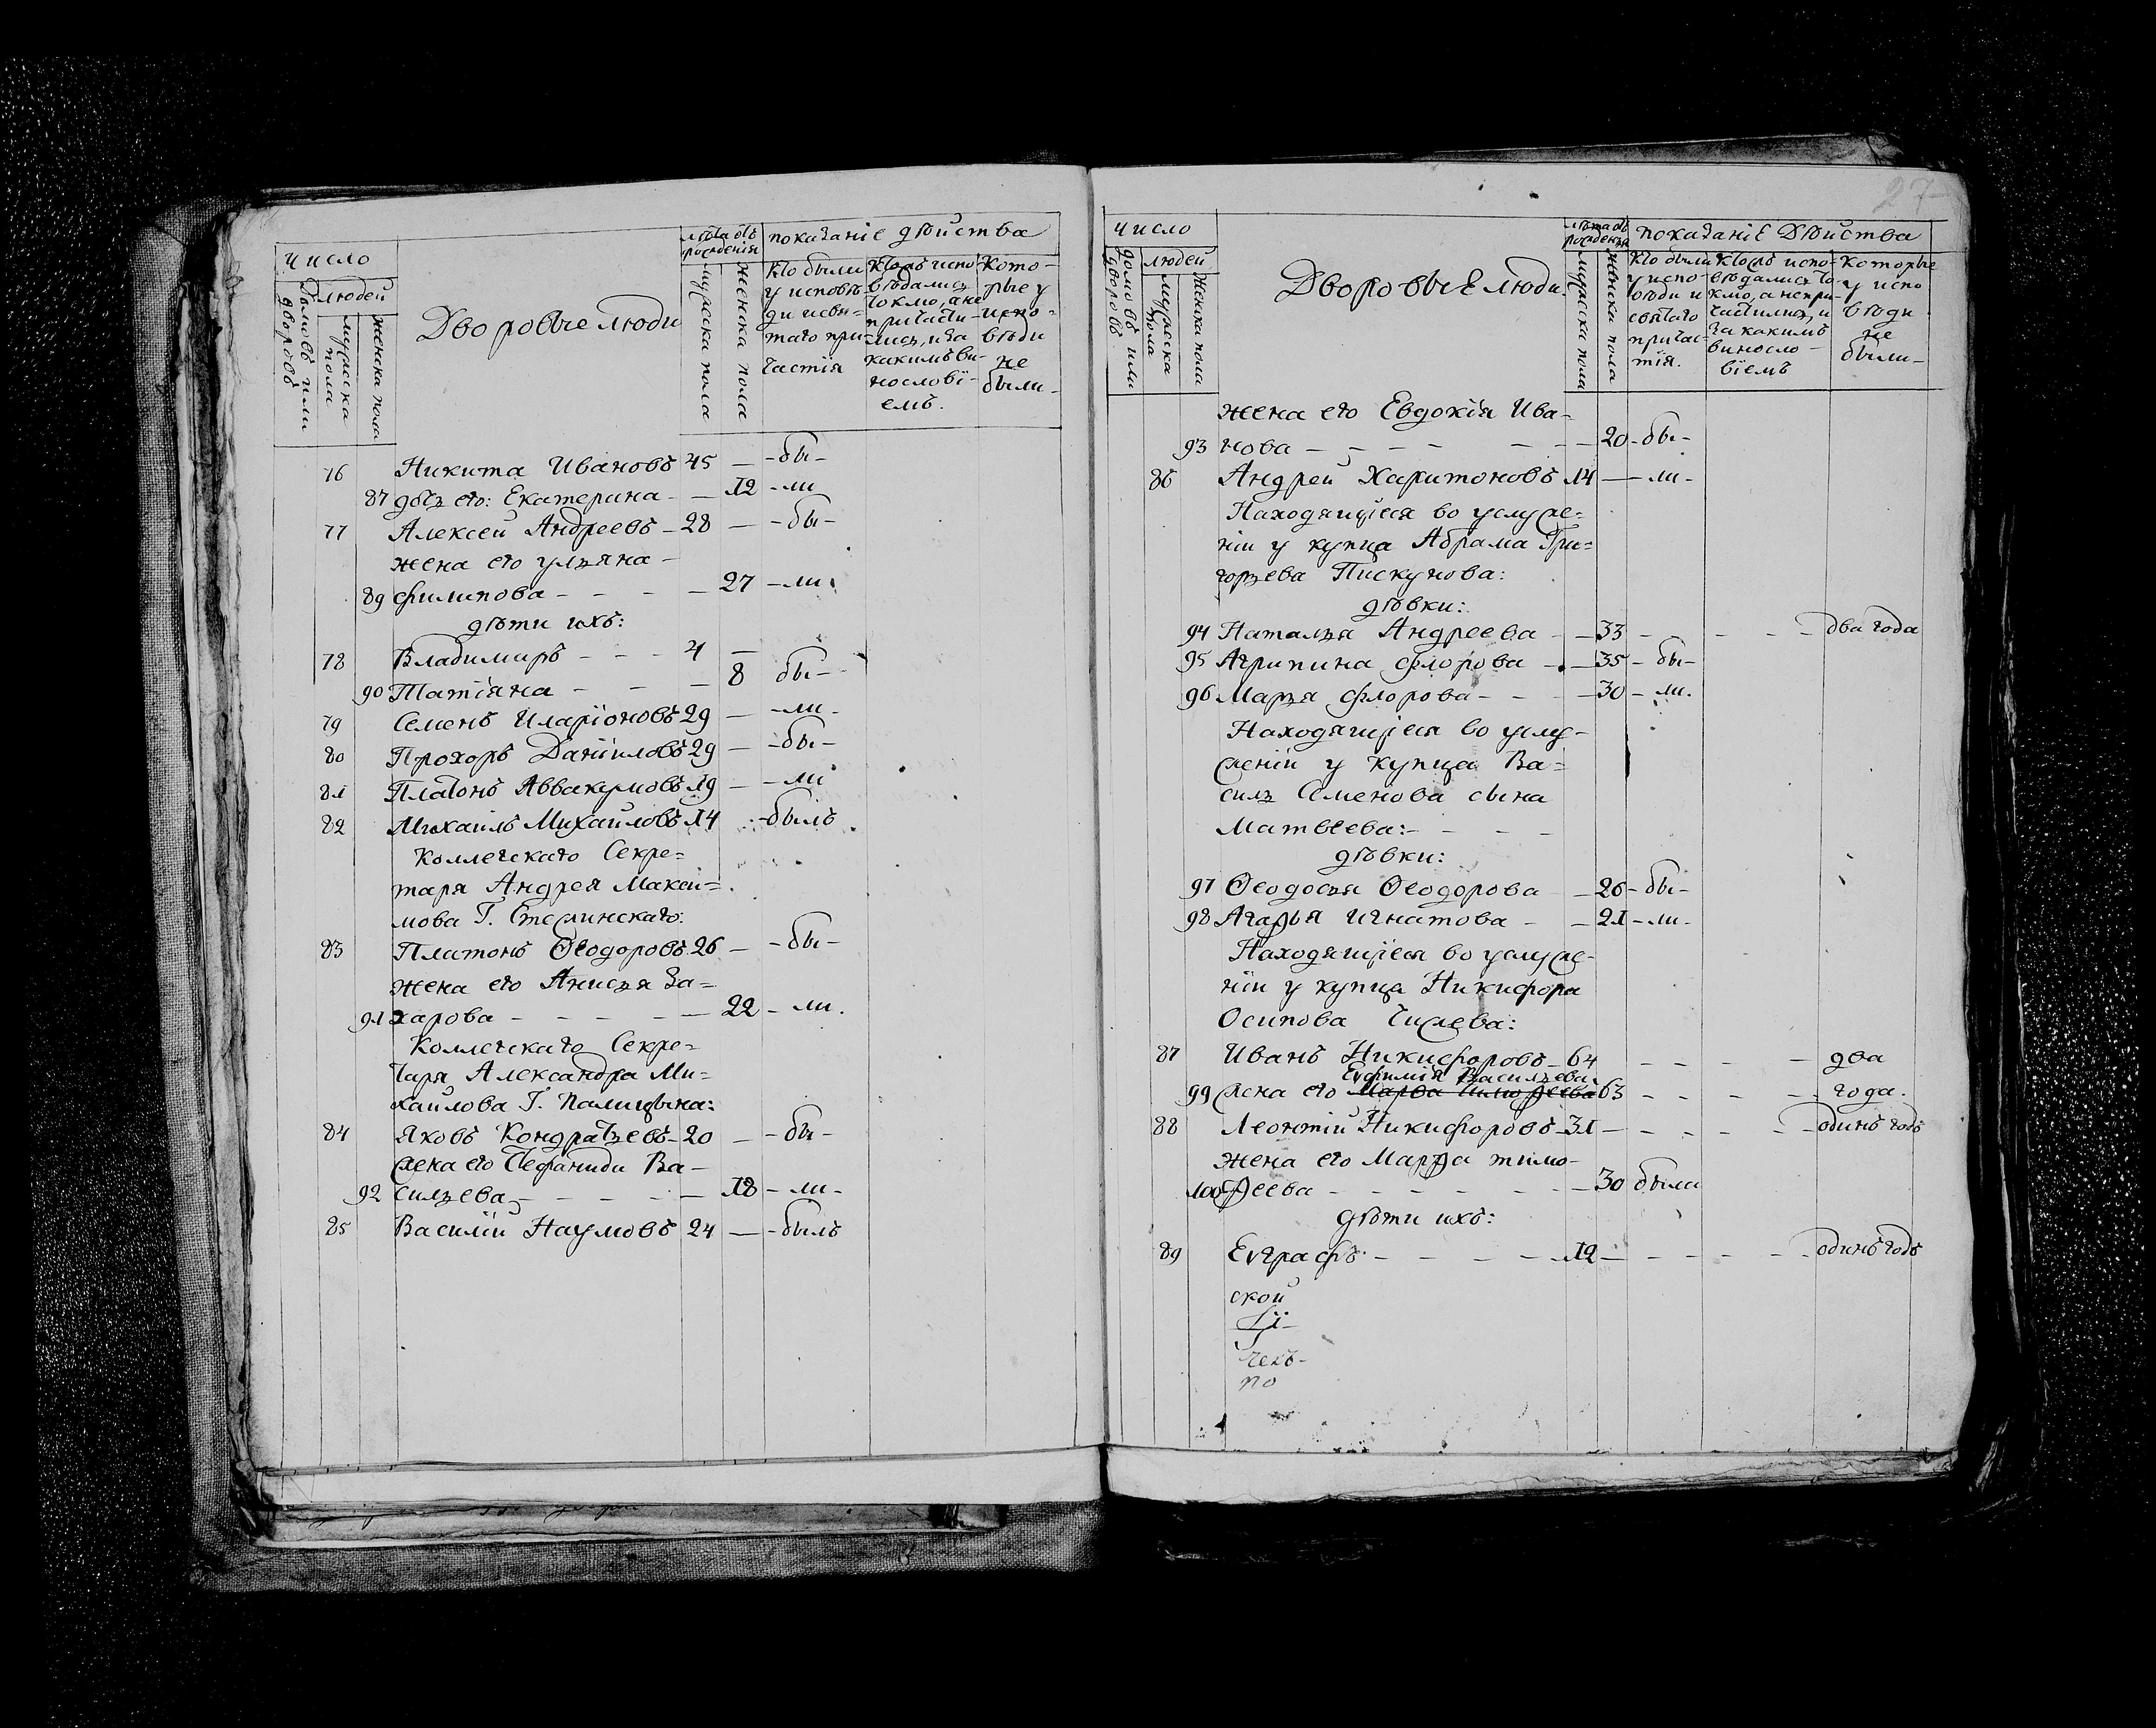 число
людей
домовъ или дворовъ
мужеска пола
женска пола
Дворовые люди
лѣта отъ рожденія
мужеска пола
женска пола
показаніе дѣйства
кто были
у исповѣ
ди и свя-
таго при-
частія
кто жъ испо-
вѣдались
токмо, а не
причасти-
лись, и за
какимъ ви-
нословї-
емъ.
кото-
рые у
испо-
вѣди
не
были-
76 Никита Ивановъ 45 — - бы -
87 дочь его: Екатерина - — 12 - ли
77 Алексеи Андреевъ - 28 — - бы -
жена его ульяна -
89 филипова - - - — 27 - ли.
дѣти ихъ:
78 Владимиръ - - - 4 —
90 Татїяна - - — 8 бы -
79 Семенъ Иларїоновъ 29 — - ли -
80 Прохоръ Данїиловъ 29 — - бы -
81 Платонъ Аввакумовъ 19 — - ли
82 Михаилъ Михайловъ 14 - былъ
Коллежскаго Секре=
таря Андрея Макси=
мова Г.
83 Платонъ Ѳеодоровъ 26 — - бы -
жена его Анисья За=
91 харова - - - - — 22 - ли.
Коллежскаго Секре=
таря Александра Ми=
хайлова Г. Палицына:
84 Яковъ Кондратьевъ - 20 — - бы -
жена его Ва -
92 сильева - - - - — 18 - ли -
85 Василїи Наумовъ 24 — - былъ
27
число
людей
домовъ или дворовъ
мужеска пола
женска пола
Дворовые люди.
лѣта отъ рожденья
мужеска пола
женска пола
показанїе Дѣйства
кто были
у испо-
вѣди и
святаго
причас-
тїя.
кто жъ испо-
вѣдались то
кмо, а непри-
частились, и
за какимъ
винослo-
вїемъ
которые
у испо
вѣди
не
были-
жена его Евдокїя Ива=
93 нова - - - - - - — 20 - бы -
86 Андреи Харитоновъ 14 — - ли -
Находящїеся во услуже=
нїи у купца Абрама Гри=
горьева Пискунова:
дѣвки:
94 Наталья Андреева - — 33 - - - - два года
95 Агрипина флорова - — 35 - бы -
96 Марья флорова - - — 30 - ли.
Находящїеся во услу-
женїи у купца Ва=
силь Семенова сына
Матвеева: - - - -
дѣвки:
97 Ѳеодосья Ѳеодорова — 26 - бы -
98 Агафья игнатова - — 21 - ли -
Находящїеся во услуже-
нїи у купца Никифора
Осипова Чижева:
87 Иванъ Никифоровъ - 64 - - - - два
Евфимїя Васильева
99 жена его Марѳа Тимофеева 63 - - - - года.
88 Леонтїи Никифоровъ - 31 — - - - - одинъ годъ
жена его Марфа тимо-
100 феева - - - - - - — 30 были
дѣти ихъ:
89 Евграфъ - - - - - 12 — - - - - одинъ годъ
ской